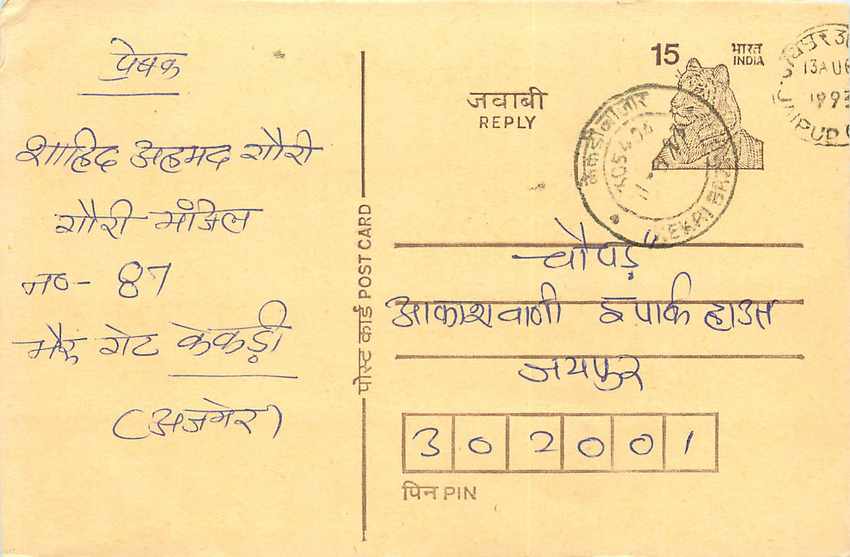 प्रेषक
शाहिद अहमद गौरी
गौरी मंजिल
न० - 87
भैरू गेट केकड़ी
(अजमेर)
पोस्ट कार्ड POST CARD
जवाबी
REPLY
15
भारत
INDIA
केकडी बाजार
KEKRI
13 AUG
1993
"चौपड़"
आकाशवाणी 5 पार्क हाउस
जयपुर
302001
पिन PIN